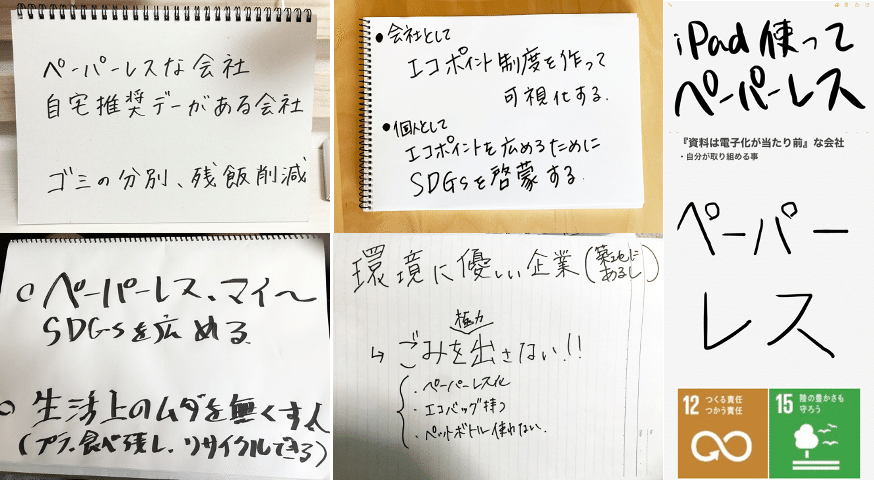 ペーパーレスな会社
自宅推奨デーがある会社
ゴミの分別、残飯削減
●会社として
エコポイント制度を作って
可視化する.
●個人として
エコポイントを広めるために
SDGsを啓蒙する.
iPad使って
ペーパーレス
『資料は電子化が当たり前』な会社
・自分が取り組める事
ペーパー
レス
12 つくる責任
つかう責任
15 陸の豊かさも
守ろう
○ペーパーレス、マイ〜
SDGsを広める
○生活上のムダを無くす人
(プラ、食べ残し、リサイクルできる)
環境に優しい企業
あるし
極力
↳ ごみを出さない!!
・ペーパーレス化
・エコバッグ持つ
・ペットボトル使わない